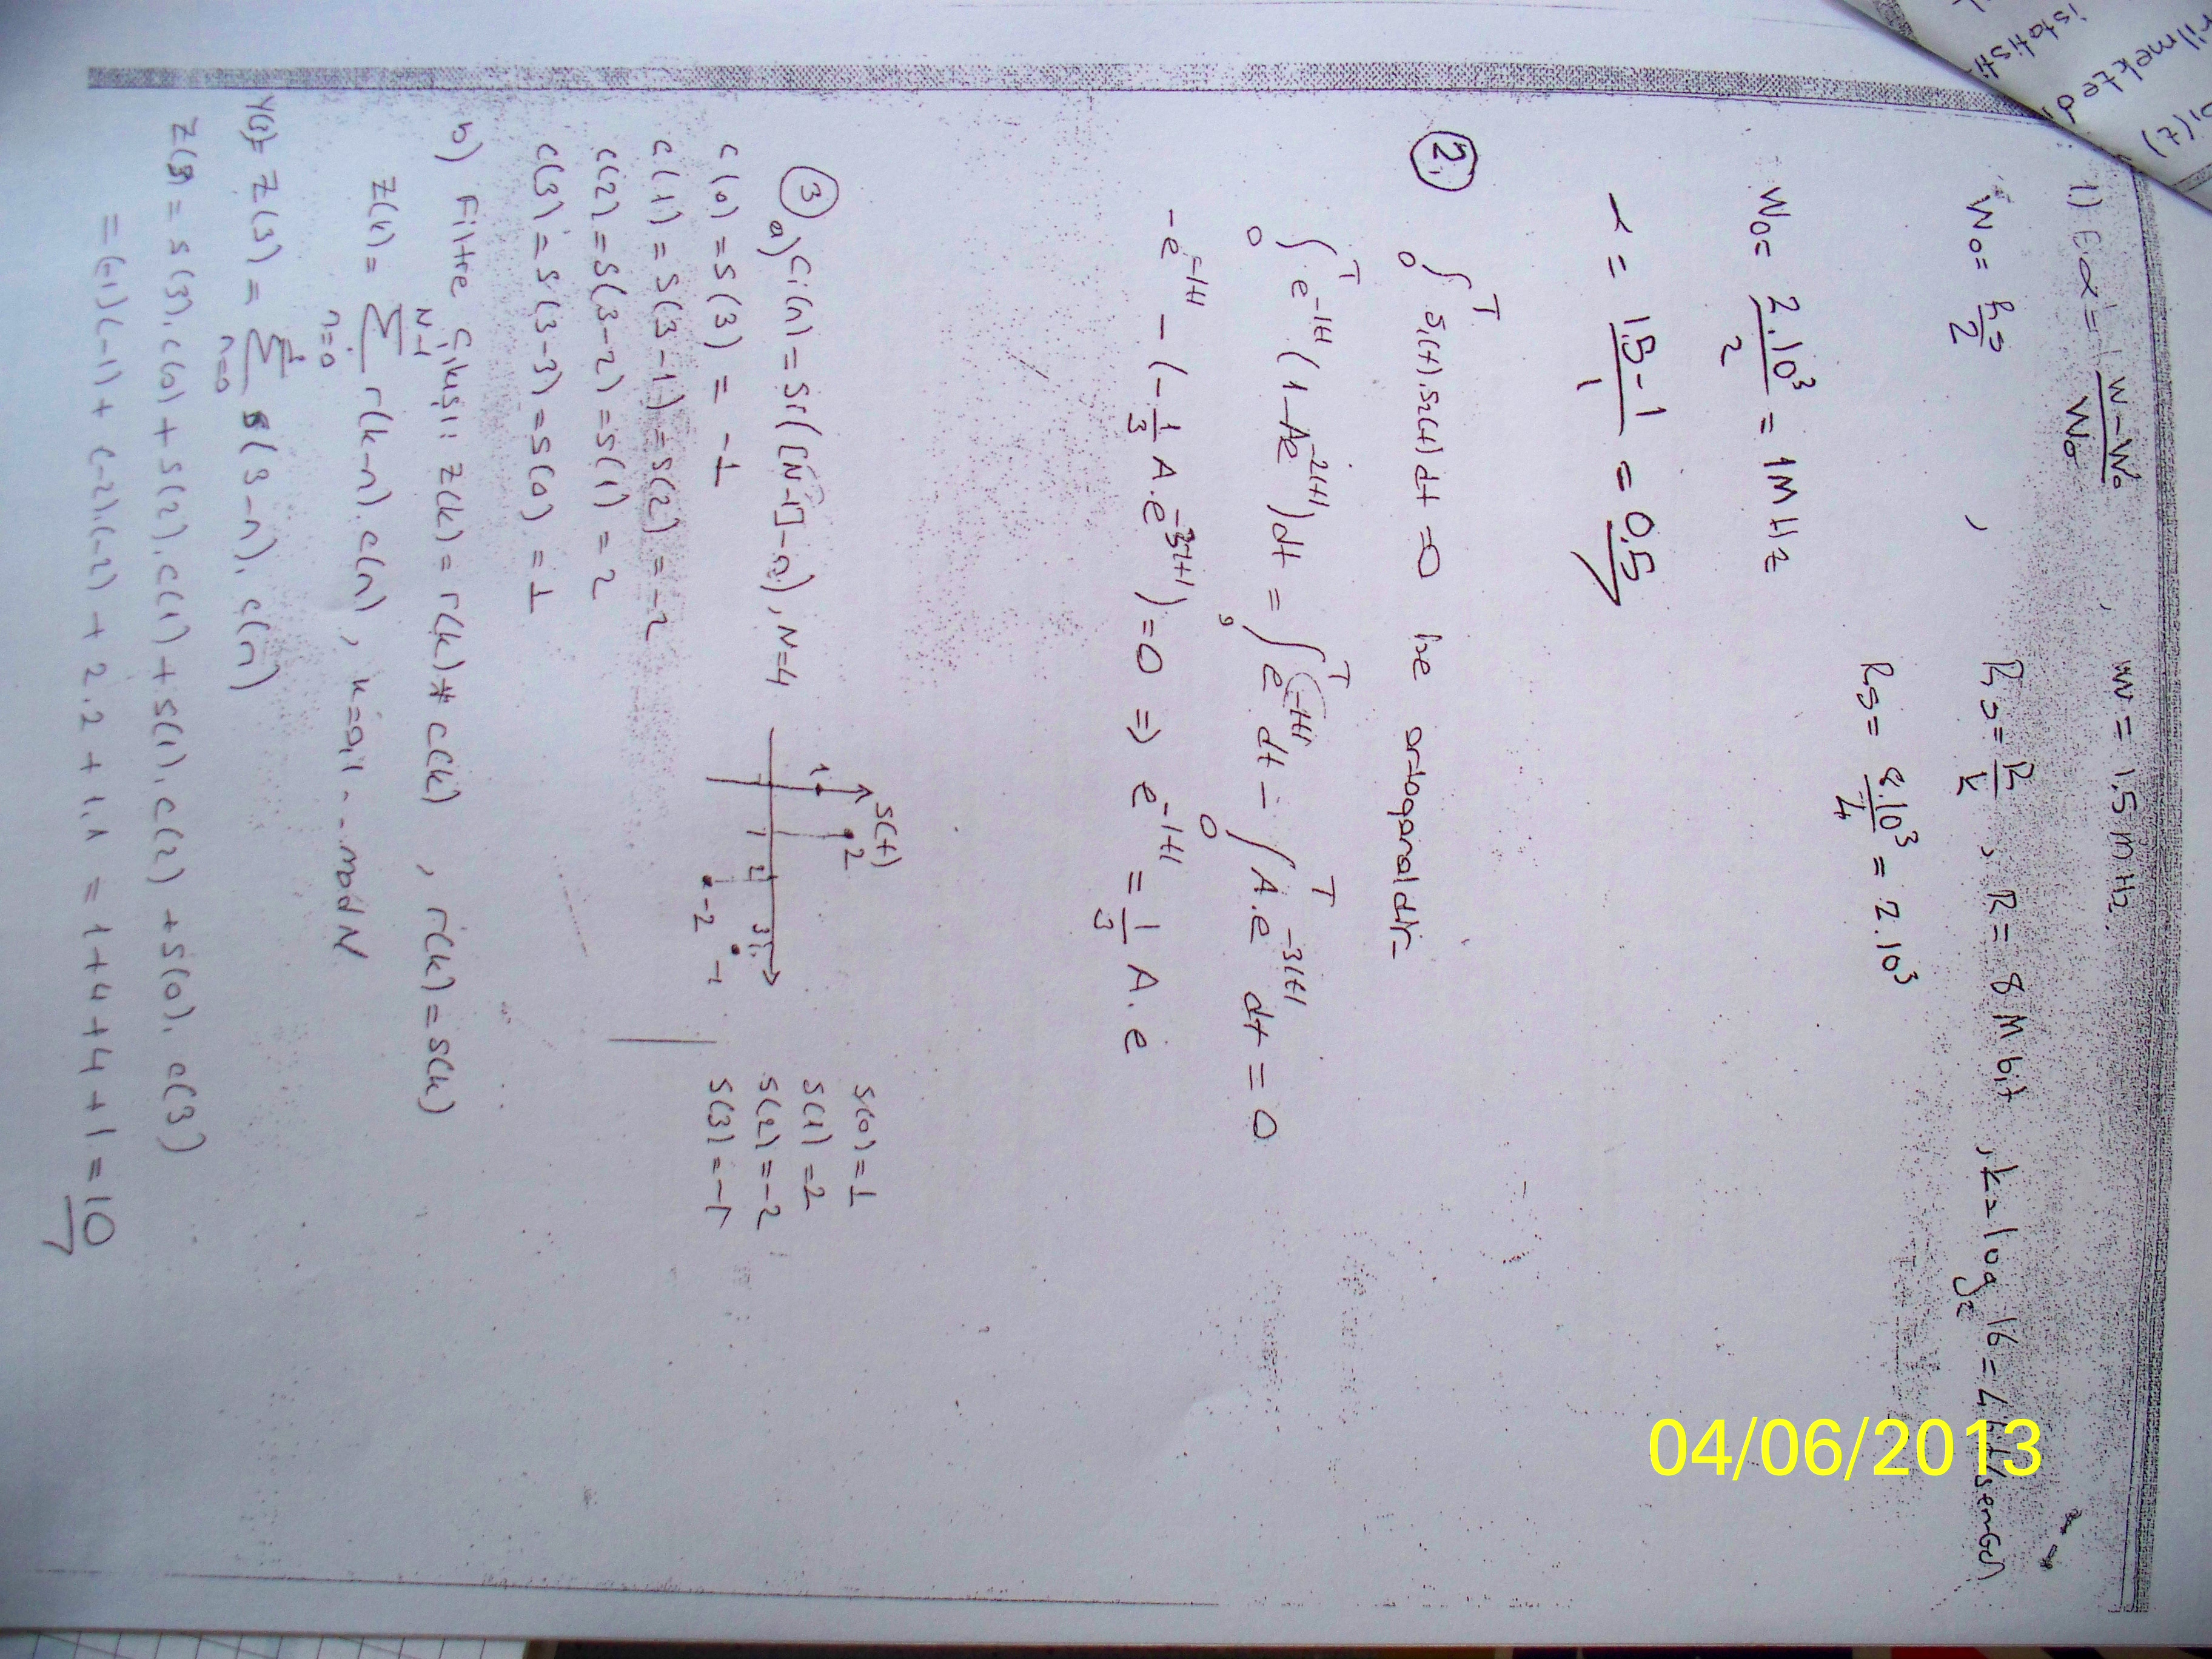 1) Ex α = W-W₀ / W₀ , w = 1,5 mHz
W₀ = Rs/2 , Rs = R/k , R = 8 M bit , k = log₂ 16 = 4 bit/sembol
Rs = 8.10³/4 = 2.10³
W₀ = 2.10³/2 = 1MHz
r = 1,5-1 / 1 = 0,5
2. ∫₀ᵀ S₁(t).S₂(t) dt = 0 ise ortogonaldir.
∫₀ᵀ e^-|t| (1-Ae^-2|t|) dt = ∫₀ᵀ e^-|t| dt - ∫₀ᵀ A.e^-3|t| dt = 0
-e^-|t| - (-1/3 A.e^-3|t|) = 0 => e^-|t| = 1/3 A.e
3 a) Ci(n) = Si([N-1]-n), N=4
S(t)
1
2
1 2 3
-2
-1
S(0) = 1
S(1) = 2
S(2) = -2
S(3) = -1
c(0) = S(3) = -1
c(1) = S(3-1) = S(2) = -2
c(2) = S(3-2) = S(1) = 2
c(3) = S(3-3) = S(0) = 1
b) Filtre Çıkışı: z(k) = r(k) * c(k) , r(k) = S(k)
z(k) = Σ n=0 N-1 r(k-n).c(n) , k=0,1 ... mod N
z(3) = Σ n=0 S(3-n).c(n)
z(3) = S(3).c(0) + S(2).c(1) + S(1).c(2) + S(0).c(3)
= (-1)(-1) + (-2).(-2) + 2.2 + 1.1 = 1+4+4+1 = 10
04/06/2013